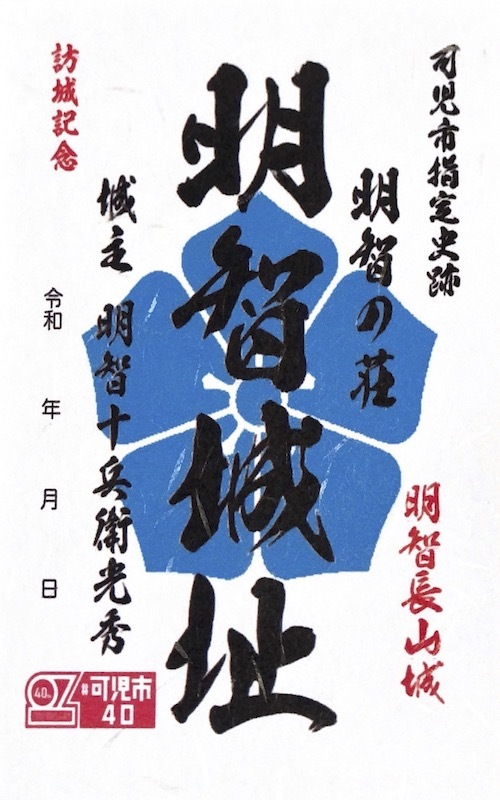 可児市指定史跡
明智の荘
明智長山城
明智城址
城主 明智十兵衛光秀
訪城記念
令和 年 月 日
40th
#可児市
40